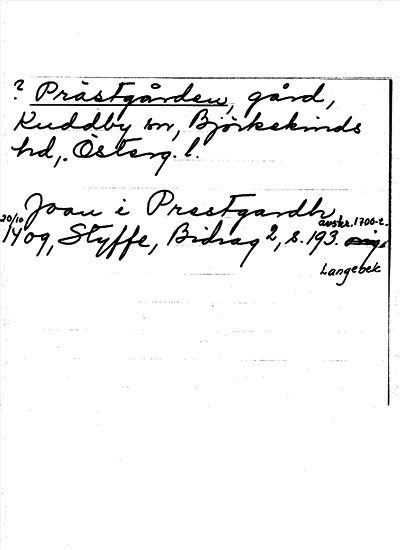 ? Prästgården, gård,
Kuddby sn, Björkekinds
hd, Österg. l.
Joan i Prestgardh
20/10 1409, Styffe, Bidrag 2, s. 193. avskr. 1700-t.
Langebek